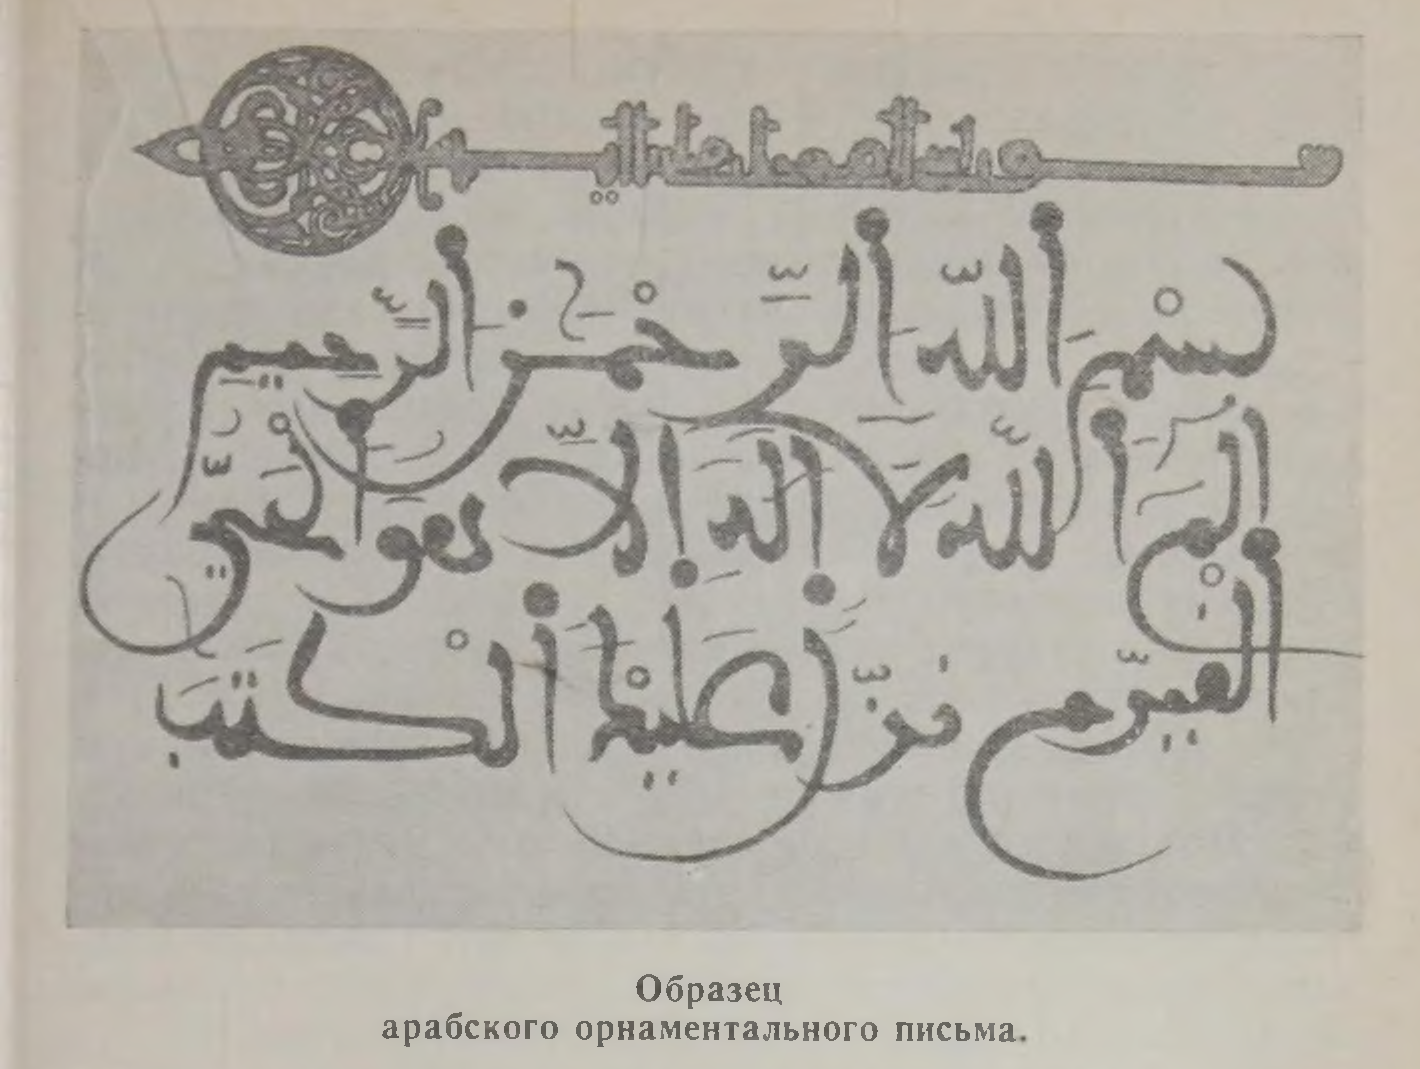 بسم الله الرحمن الرحيم
الم الله لا إله إلا هو الحي
القيوم نزل عليك الكتب
Образец
арабского орнаментального письма.